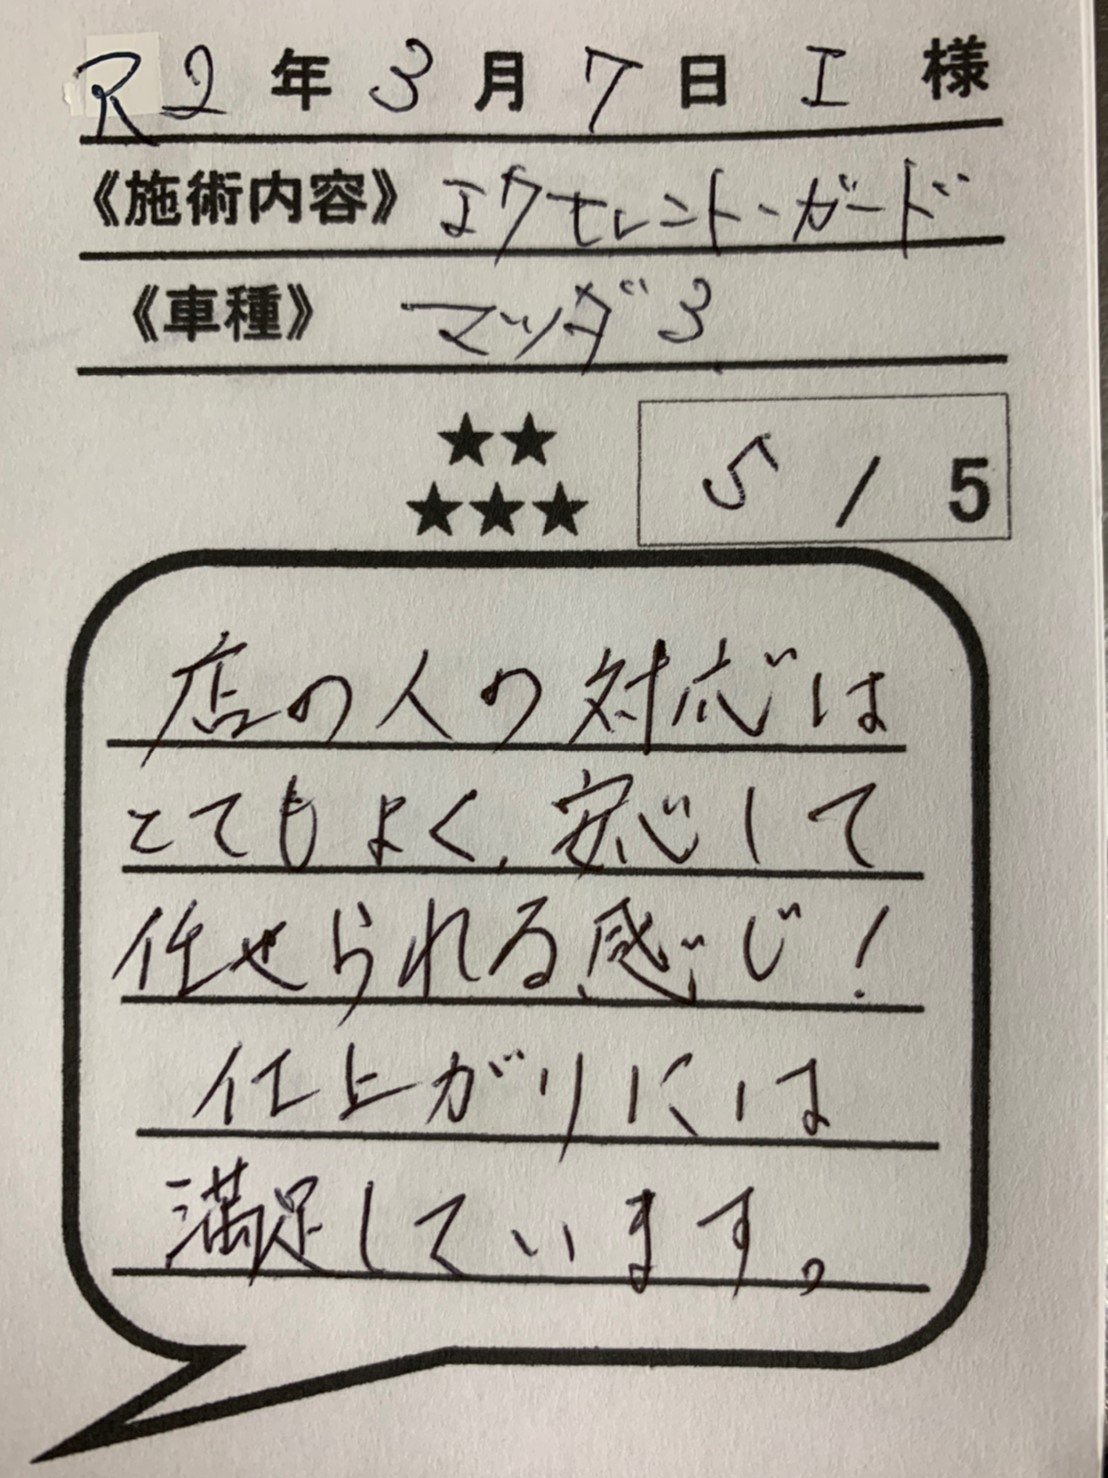 R2年3月7日 I 様
《施術内容》エクセレント・ガード
《車種》マツダ3
★★
★★★
5/5
店の人の対応は
とてもよく、安心して
任せられる感じ!
仕上がりには
満足しています。